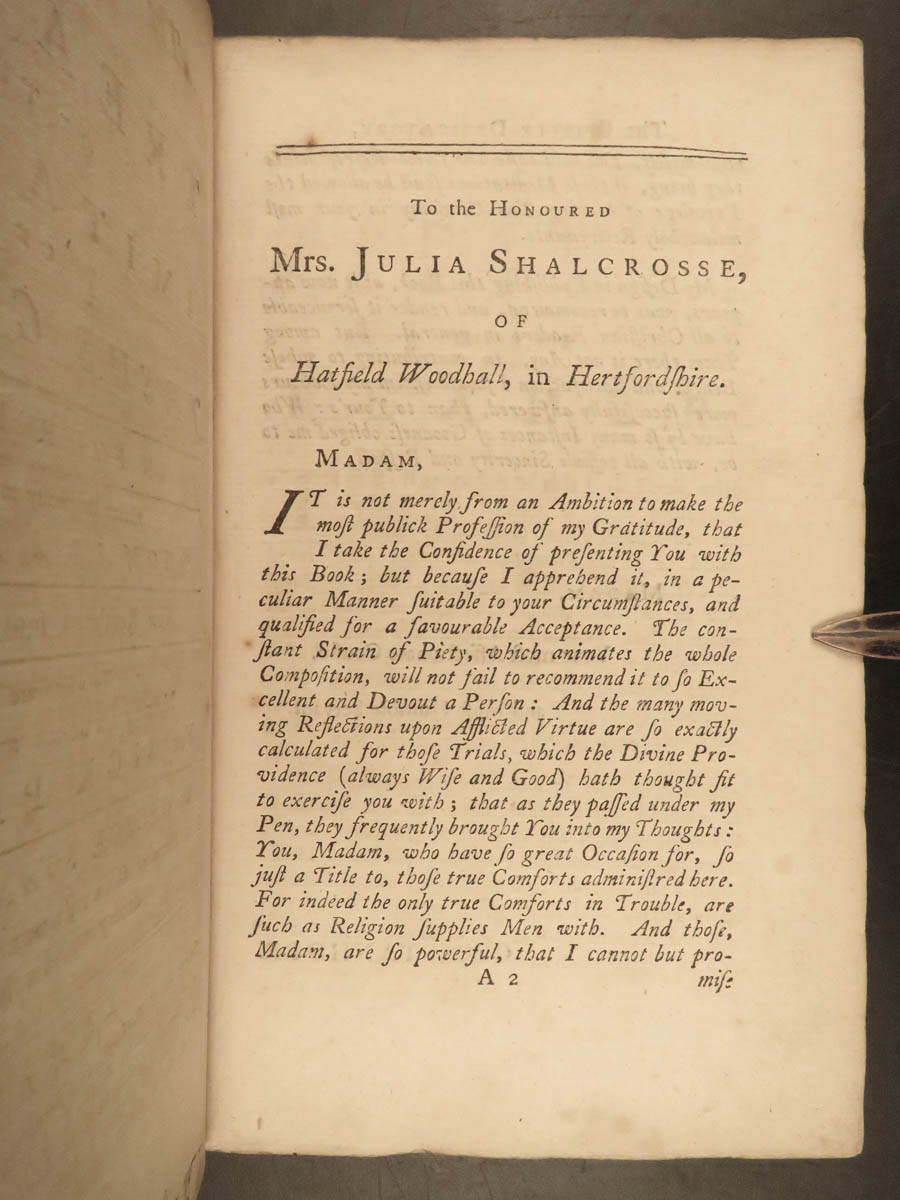 To the HONOURED
Mrs. JULIA SHALCROSSE,
OF
Hatfield Woodhall, in Hertfordſhire.
MADAM,
IT is not merely from an Ambition to make the
moſt publick Profeſſion of my Gratitude, that
I take the Confidence of preſenting You with
this Book; but becauſe I apprehend it, in a pe-
culiar Manner ſuitable to your Circumſtances, and
qualified for a favourable Acceptance. The con-
ſtant Strain of Piety, which animates the whole
Compoſition, will not fail to recommend it to ſo Ex-
cellent and Devout a Perſon: And the many mov-
ing Reflections upon Afflicted Virtue are ſo exactly
calculated for thoſe Trials, which the Divine Pro-
vidence (always Wiſe and Good) hath thought fit
to exerciſe you with; that as they paſſed under my
Pen, they frequently brought You into my Thoughts:
You, Madam, who have ſo great Occaſion for, ſo
juſt a Title to, thoſe true Comforts adminiſtred here.
For indeed the only true Comforts in Trouble, are
ſuch as Religion ſupplies Men with. And thoſe,
Madam, are ſo powerful, that I cannot but pro-
A 2 miſe